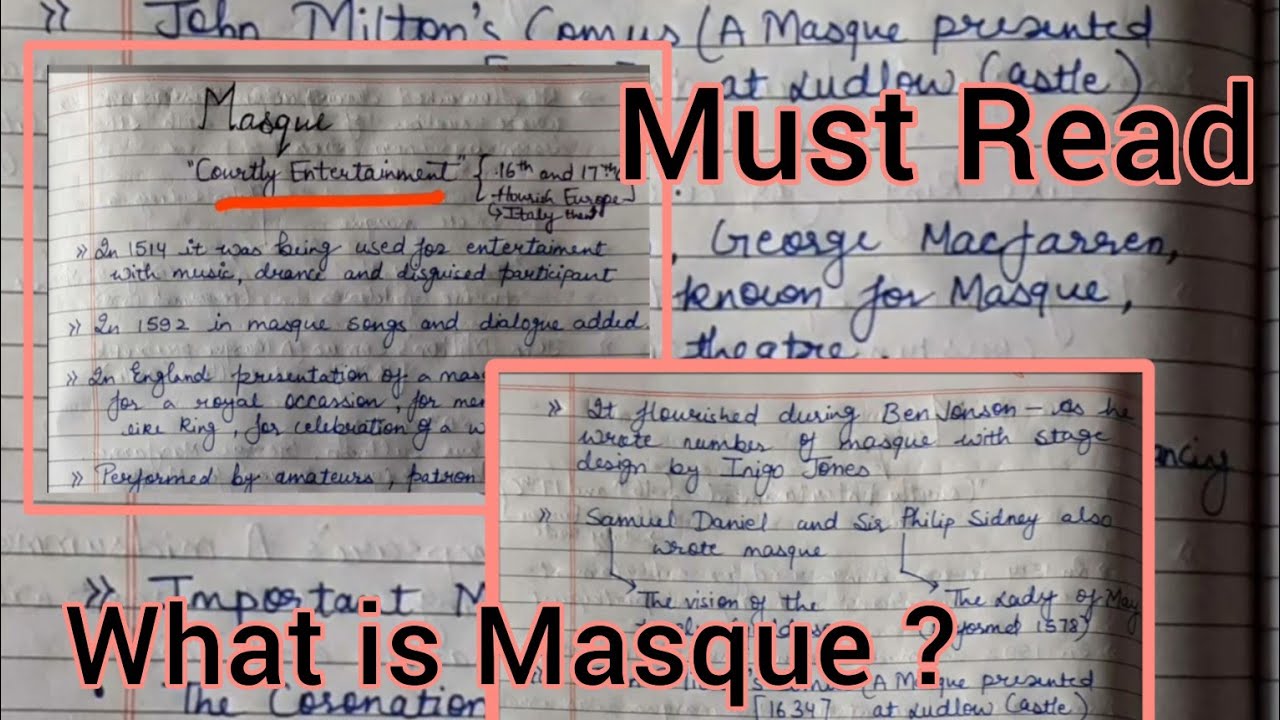 » John Milton's Comus (A Masque presented
at Ludlow Castle)
Must Read
Masque
"Courtly Entertainment" { 16th and 17th
flourish Europe
↳ Italy
» In 1514 it was being used for entertaiment
with music, drance and disguised participant
» In 1592 in masque songs and dialogue added
» In England presentation of a mas
for a royal occassion, for mem
like King, for celebration of a w
» Performed by amateurs, patron
, George Macfarren,
known for Masque,
theatre.
» It flourished during Ben Jonson – as he
wrote number of masque with stage
design by Inigo Jones
» Samuel Daniel and Sir Philip Sidney also
wrote masque
The vision of the
The Lady of May
1578)
(A Masque presented
[1634] at Ludlow Castle)
» Important M
What is Masque ?
• The Coronation